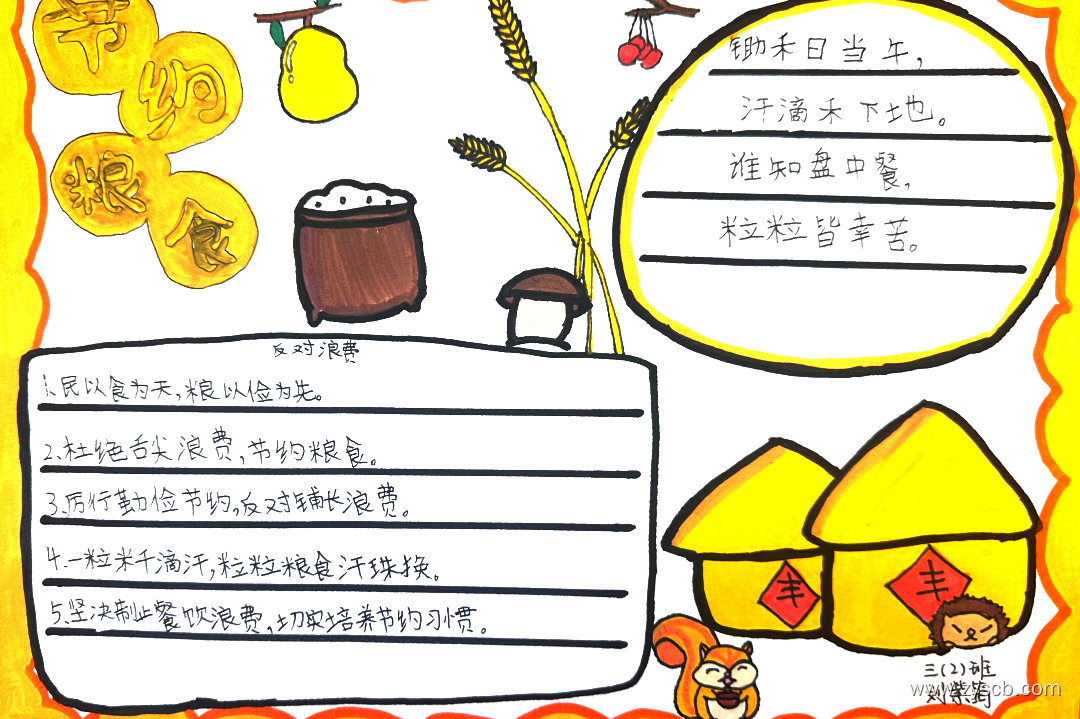 节约
粮食
锄禾日当午,
汗滴禾下地。
谁知盘中餐,
粒粒皆幸苦。
反对浪费
1.民以食为天,粮以俭为先。
2.杜绝舌尖浪费,节约粮食。
3.厉行勤俭节约,反对铺张浪费。
4.一粒米千滴汗,粒粒粮食汗珠换。
5.坚决制止餐饮浪费,切实培养节约习惯。
丰
丰
三(2)班